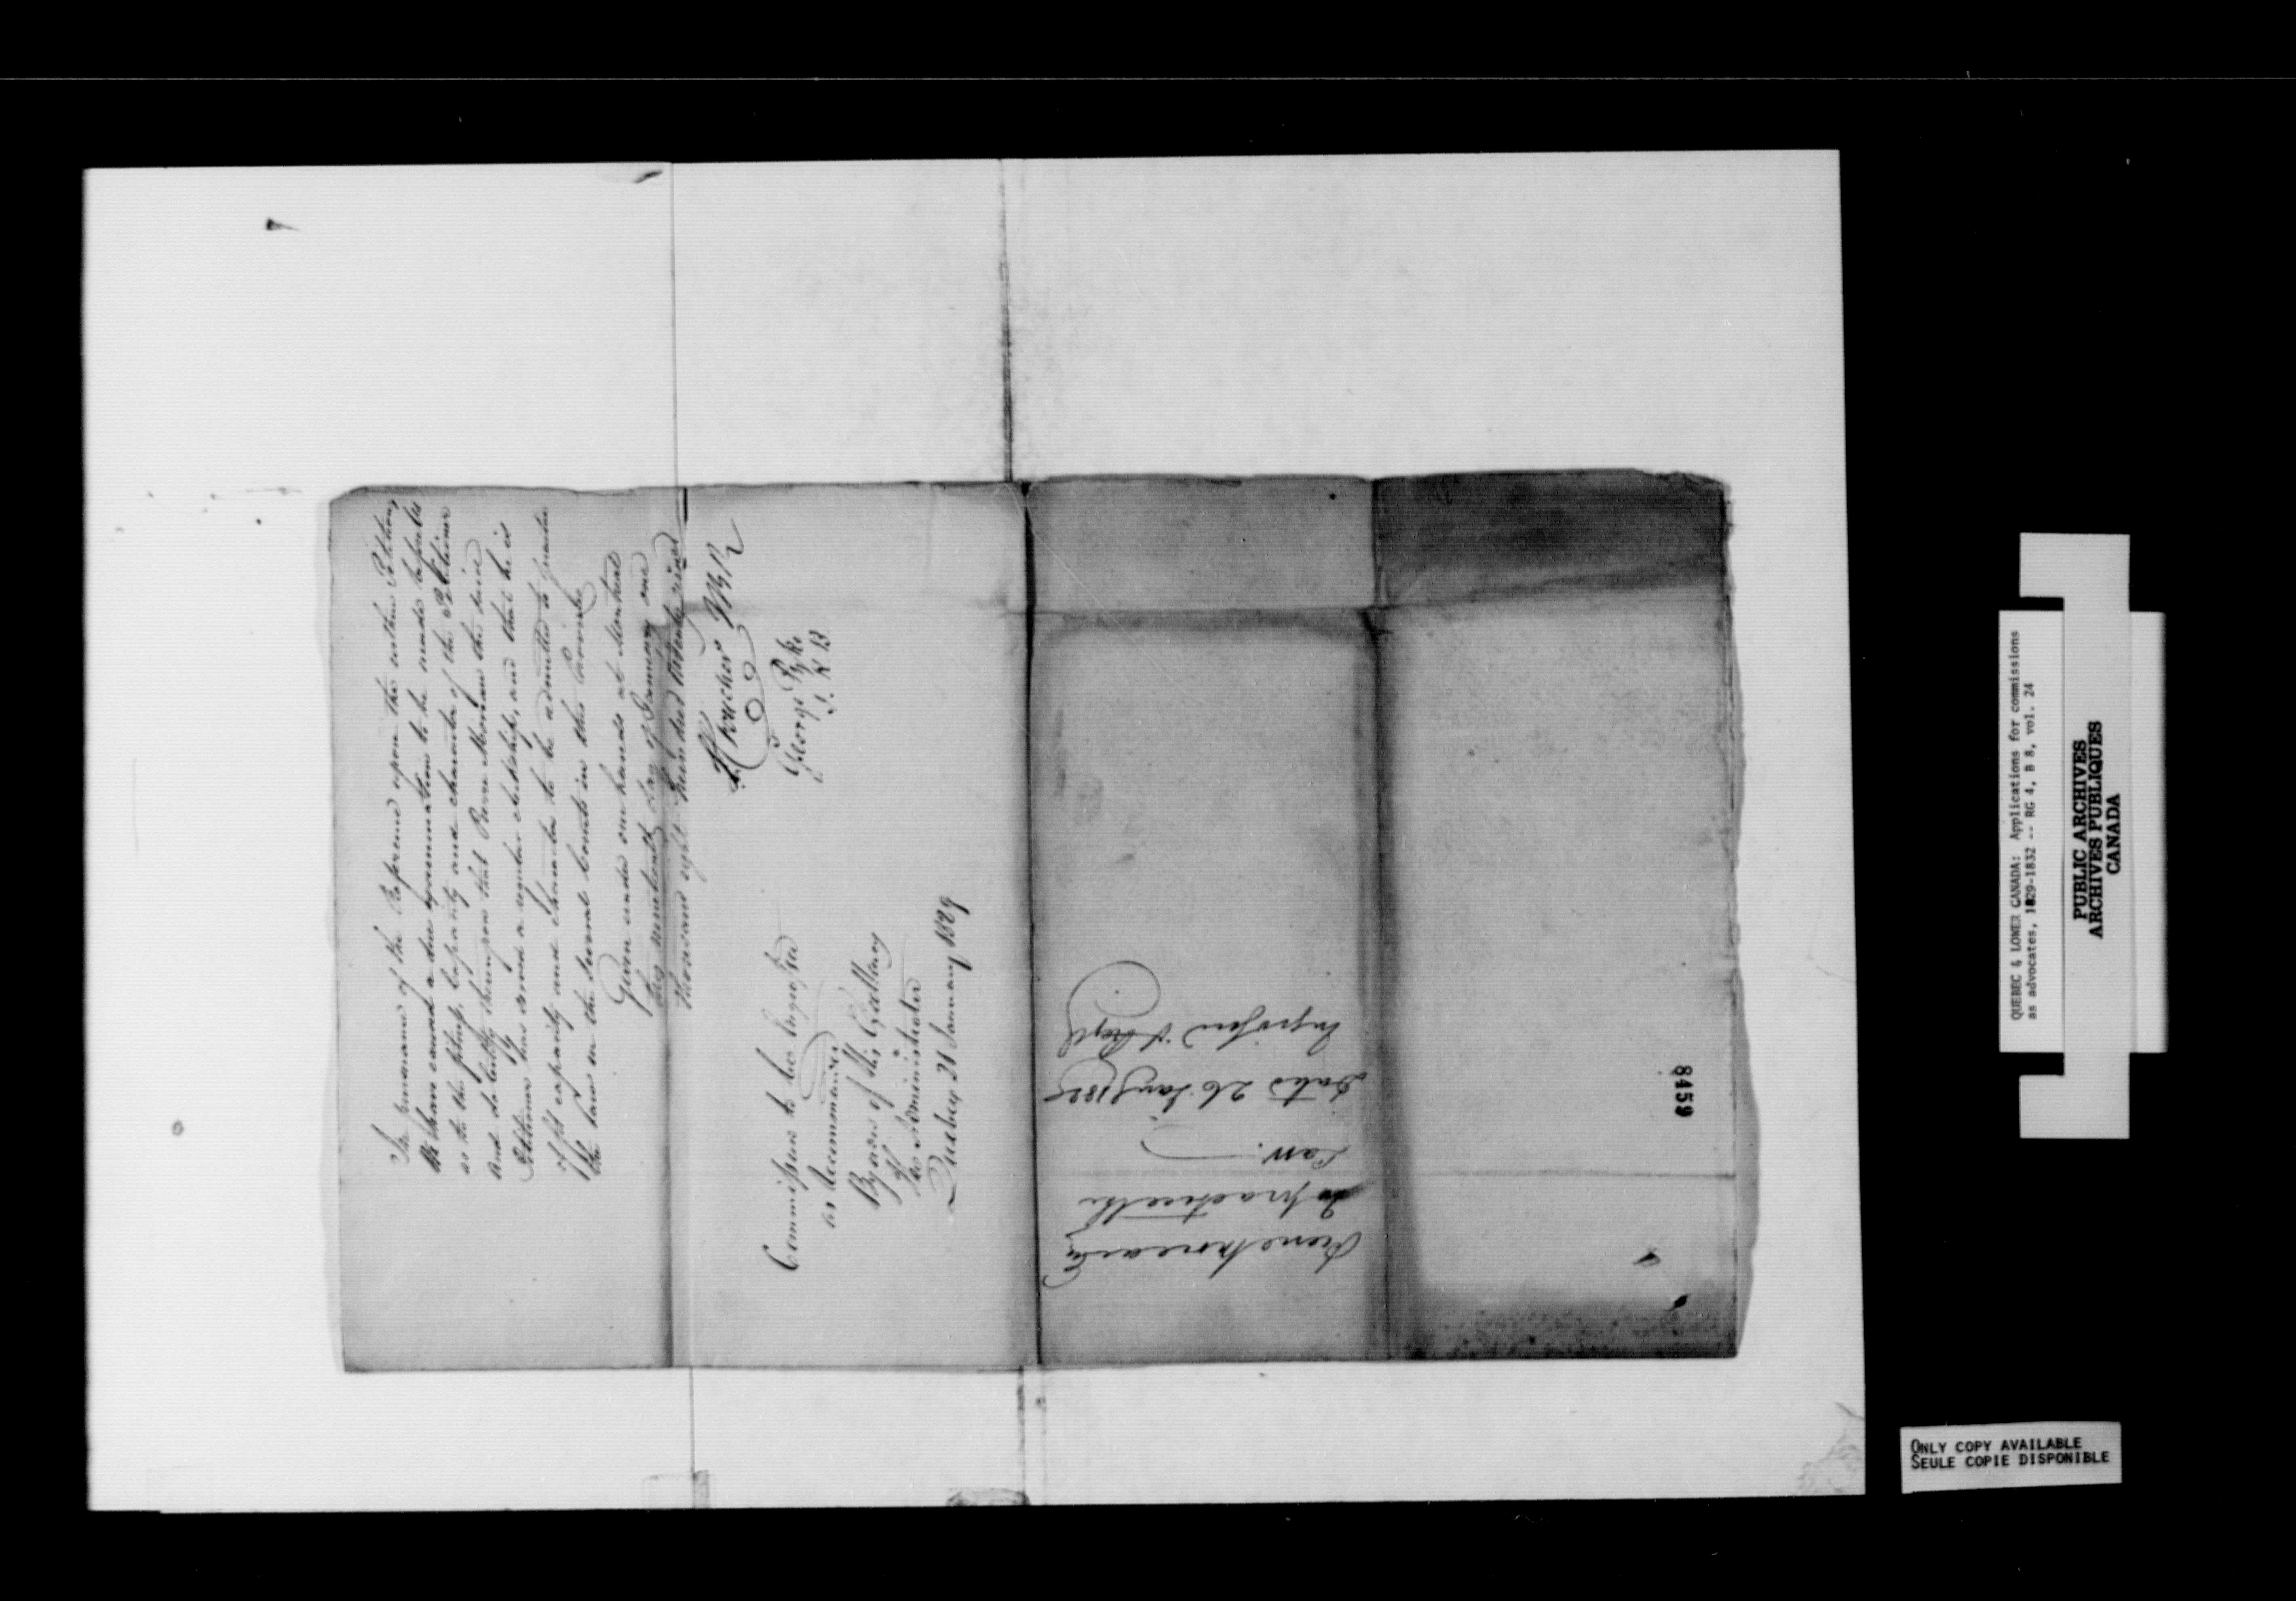 In pursuance of the Reference upon the within Petition
We have caused a due examination to be made, as well
as to the fitness, capacity and character of the Petitioner
And do certify thereupon that Pierre Moreau the said
Petitioner has served a regular clerkship, and that he is
of fit capacity and character to be admitted to practice
the law in the several Courts in this Province
Given under our hands at Montreal
this nineteenth day of January one
thousand eight hundred & twenty nine
L. C. Foucher J.B.R
George Pyke
J. K B
Commission to be Engrossed
as recommended
By order of His Excellency
The Administrator
Quebec 21 January 1829
Pierre Moreau
To practice the
Law.
Dated 26 Jany 1829
Engrossed
8459
QUEBEC & LOWER CANADA: Applications for commissions
as advocates, 1829-1832 -- RG 4, B 8, vol. 24
PUBLIC ARCHIVES
ARCHIVES PUBLIQUES
CANADA
ONLY COPY AVAILABLE
SEULE COPIE DISPONIBLE